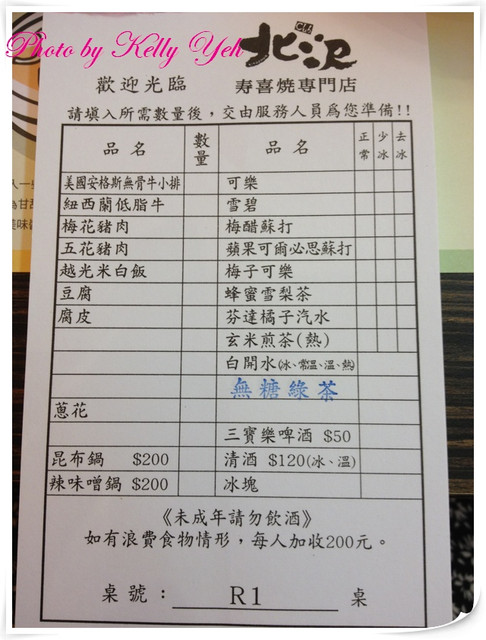 Photo by Kelly Yeh
北澤
歡迎光臨 寿喜燒専門店
請填入所需數量後，交由服務人員為您準備!!
品名 數量 品名 正常 少冰 去冰
美國安格斯無骨牛小排 可樂
紐西蘭低脂牛 雪碧
梅花豬肉 梅醋蘇打
五花豬肉 蘋果可爾必思蘇打
越光米白飯 梅子可樂
豆腐 蜂蜜雪梨茶
腐皮 芬達橘子汽水
玄米煎茶(熱)
白開水(冰、常溫、溫、熱)
無糖綠茶
蔥花
三寶樂啤酒 $50
昆布鍋 $200 清酒 $120(冰、溫)
辣味噌鍋 $200 冰塊
《未成年請勿飲酒》
如有浪費食物情形，每人加收200元。
桌號： R1 桌